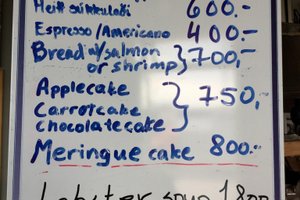 Heit súkkulaði 600.-
Espresso/Americano 400.-
Bread w/salmon
or shrimp 700,-
Applecake
Carrotcake 750,-
Chocolatecake
Meringue cake 800.-
Lobster soup 1800